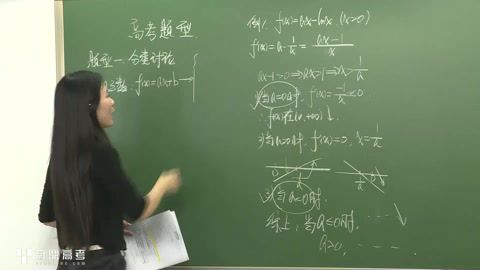 高考题型
题型一.分类讨论
f(x)=ax+b→{
例1. f(x)=ax-lnx (x>0)
f'(x)=a-1/x=(ax-1)/x
ax-1>0⇒ax>1⇒x>1/a
1)当a=0时, f'(x)=-1/x≤0
∴f(x)在(0,+∞)↓
2)当a>0时, f'(x)=0, x=1/a
0 1/a 1/a 0
3)当a<0时.
综上:当a≤0时. …↓
a>0, …